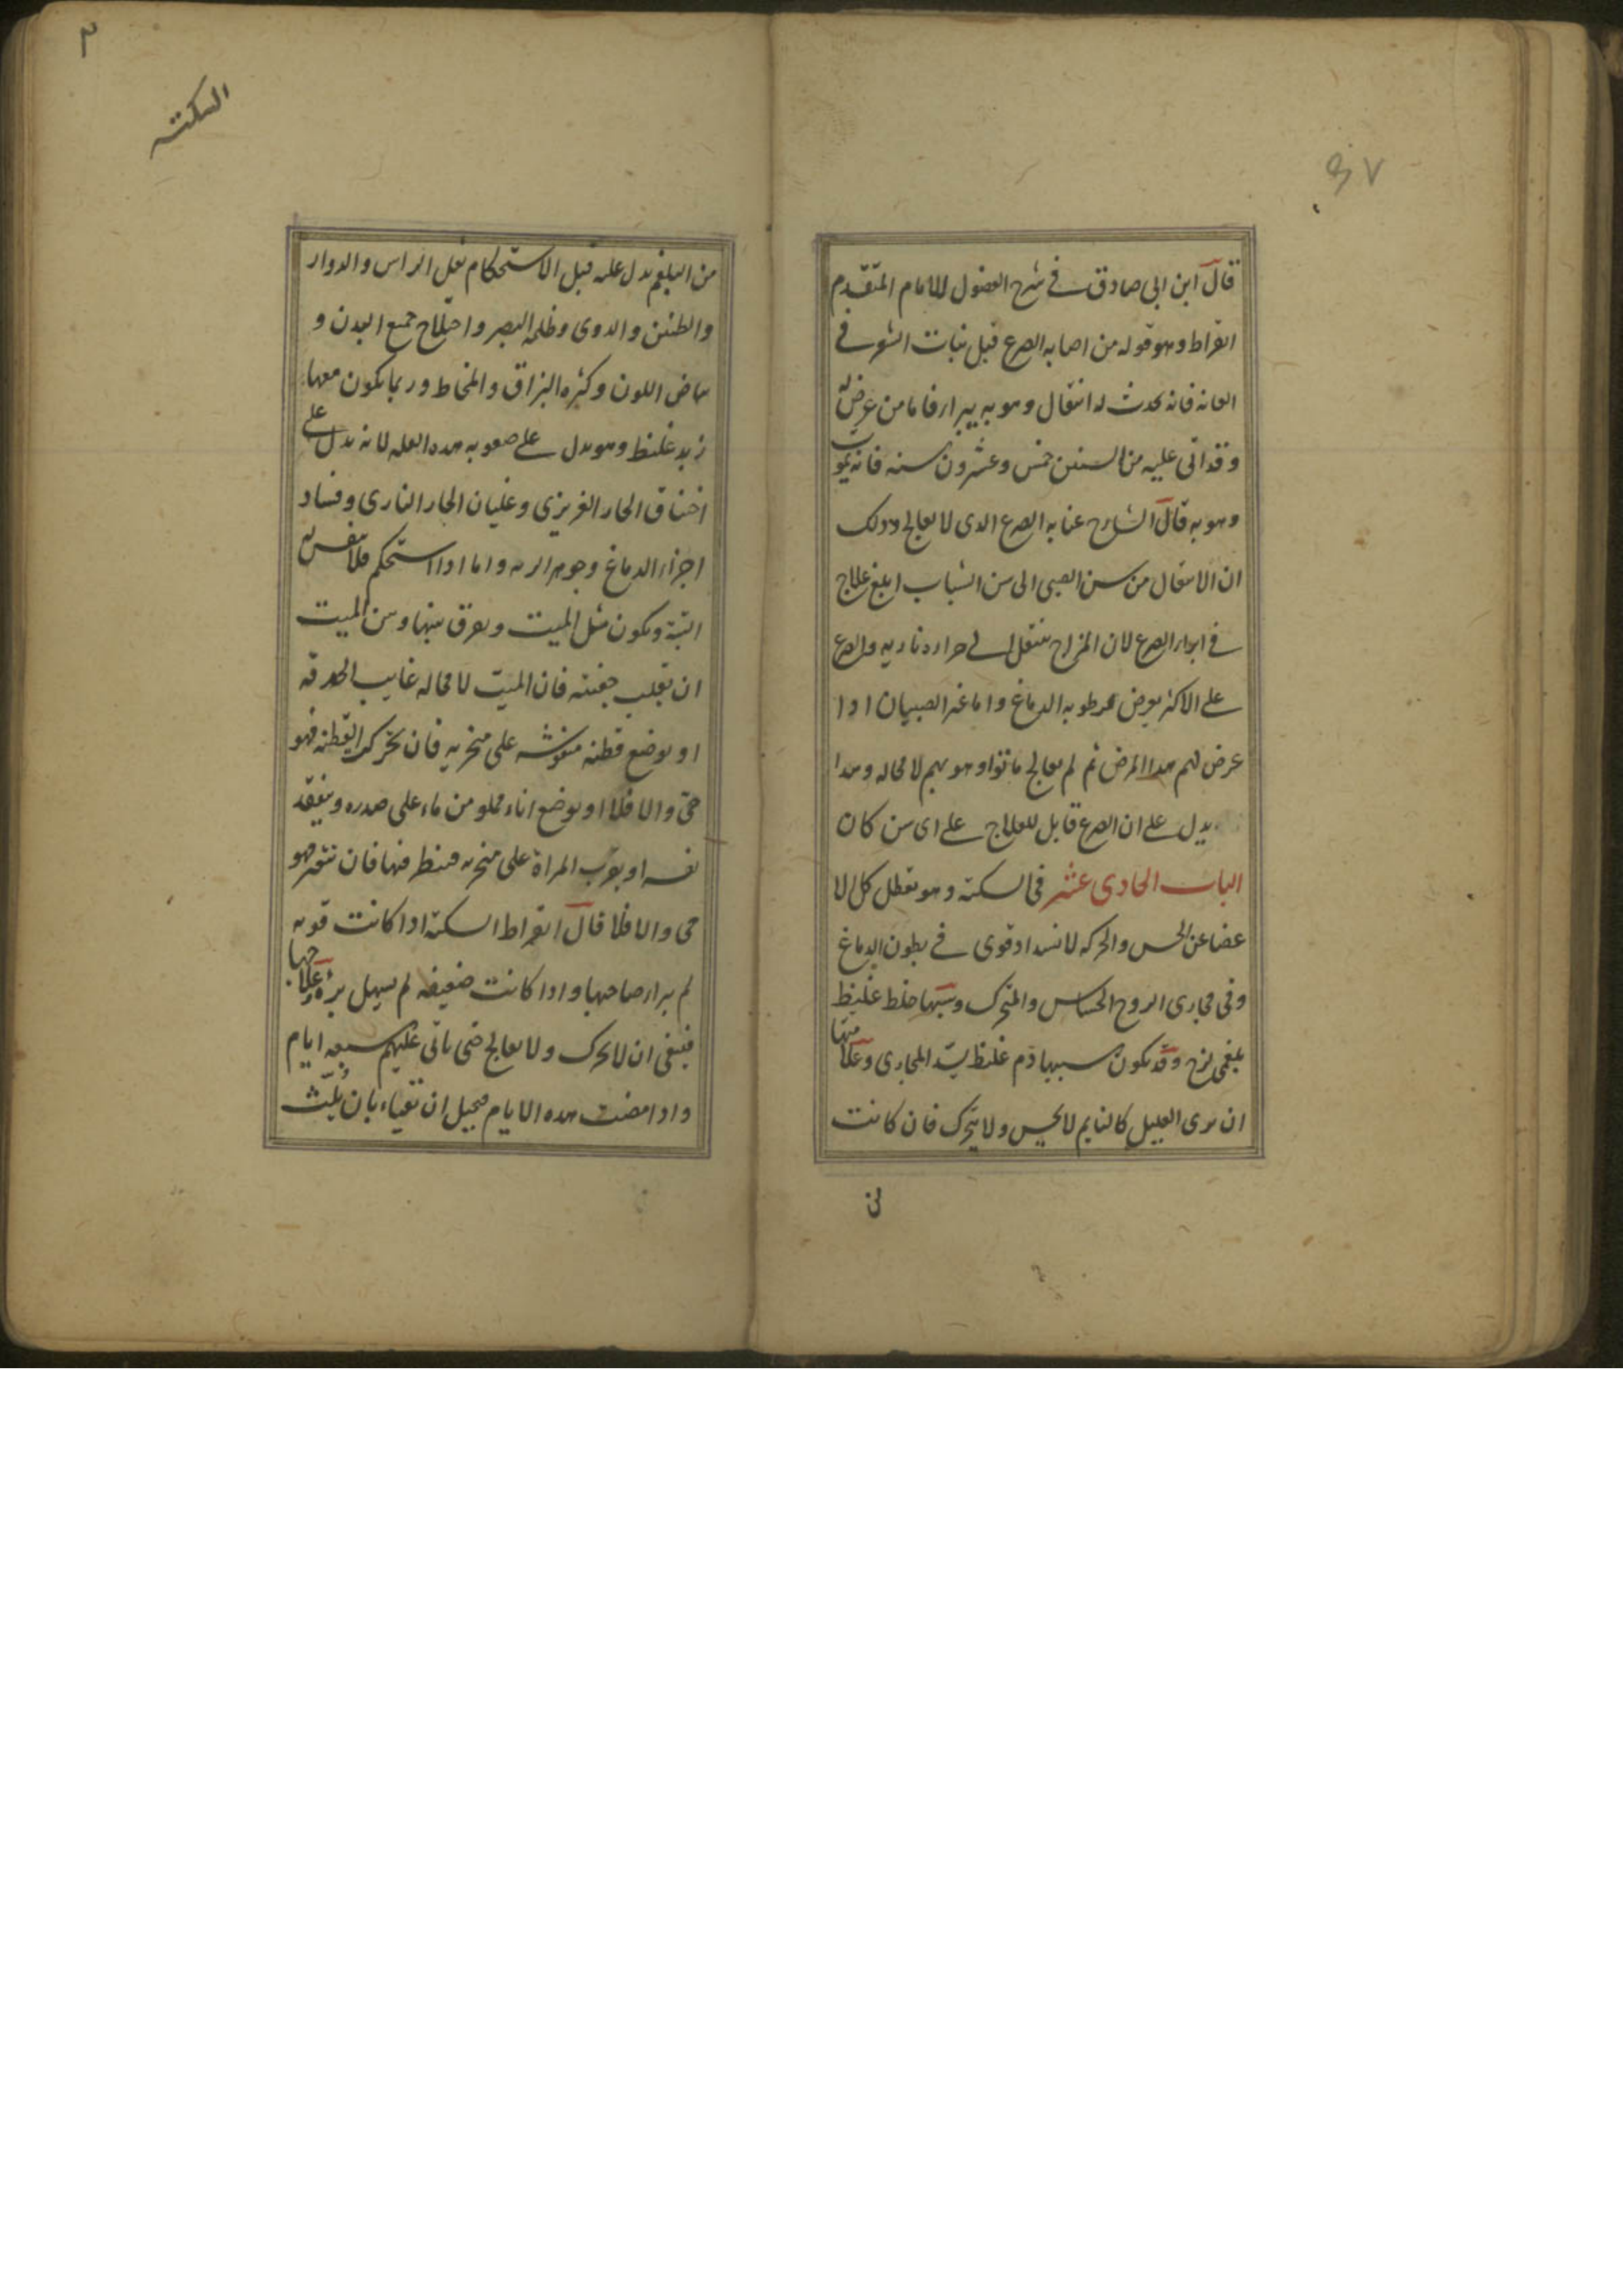 قال ابن ابى صادق فى شرح الفصول للامام المتقدم
ابقراط وهو قوله من اصابه الصرع قبل نبات الشعر فى
العانه فانه يحدث له انتقال وهو به يبرا فاما من عرض له
وقد اتى عليه من السنين خمس وعشرون سنه فانه يموت
وهو به قال الشارح عنا به الصرع الدى لا يعالج ودلك
ان الانتقال من سن الصبى الى سن الشباب ابلغ علاج
فى ابراء الصرع لان المزاج ينتقل الى حراره ناريه والصرع
على الاكثر يعرض لرطوبه الدماغ واما غير الصبيان ادا
عرض لهم هدا المرض ثم لم يعالج ماتوا وهو بهم لا محاله وهدا
يدل على ان الصرع قابل للعلاج على اى سن كان
الباب الحادى عشر فى السكته وهو تعطل كل الا
عضا عن الحس والحركه لانسداد قوى فى بطون الدماغ
وفى مجارى الروح الحساس والمتحرك وسببها خلط غليظ
بلغمى لزج وقد يكون سببها دم غليظ يسد المجارى وعلامتها
ان يرى العليل كالنايم لا يحس ولا يتحرك فان كانت
من
٣
السكته
من البلغم يدل عليه قبل الاستحكام ثقل الراس والدوار
والطنين والدوى وظلمه البصر واختلاج جميع البدن و
بياض اللون وكثره البزاق والمخاط وربما يكون معها
زبد غليظ وهو يدل على صعوبه هده العله لانه يدل على
اختناق الحار الغريزى وغليان الحار النارى وفساد
اجزاء الدماغ وجوهر الريه واما ادا استحكم فلا نفس له
البتة ويكون مثل الميت ويفرق بينها وبين الميت
ان يقلب جفنه فان الميت لا محاله غايب الحدقه
او يوضع قطنه منفوشه على منخريه فان تحركت القطنه فهو
حى والا فلا او يوضع اناء مملو من ماء على صدره ويتفقد
نفسه او يقرب المراة على منخريه فينظر فيها فان تتغير فهو
حى والا فلا قال ابقراط السكته ادا كانت قويه
لم يبرا صاحبها وادا كانت ضعيفه لم يسهل برؤه علاجها
فينبغى ان لا يحرك ولا يعالج حتى ياتى عليهم سبعه ايام
وادا مضت هده الايام فيحيل ان تقياء بان يلث